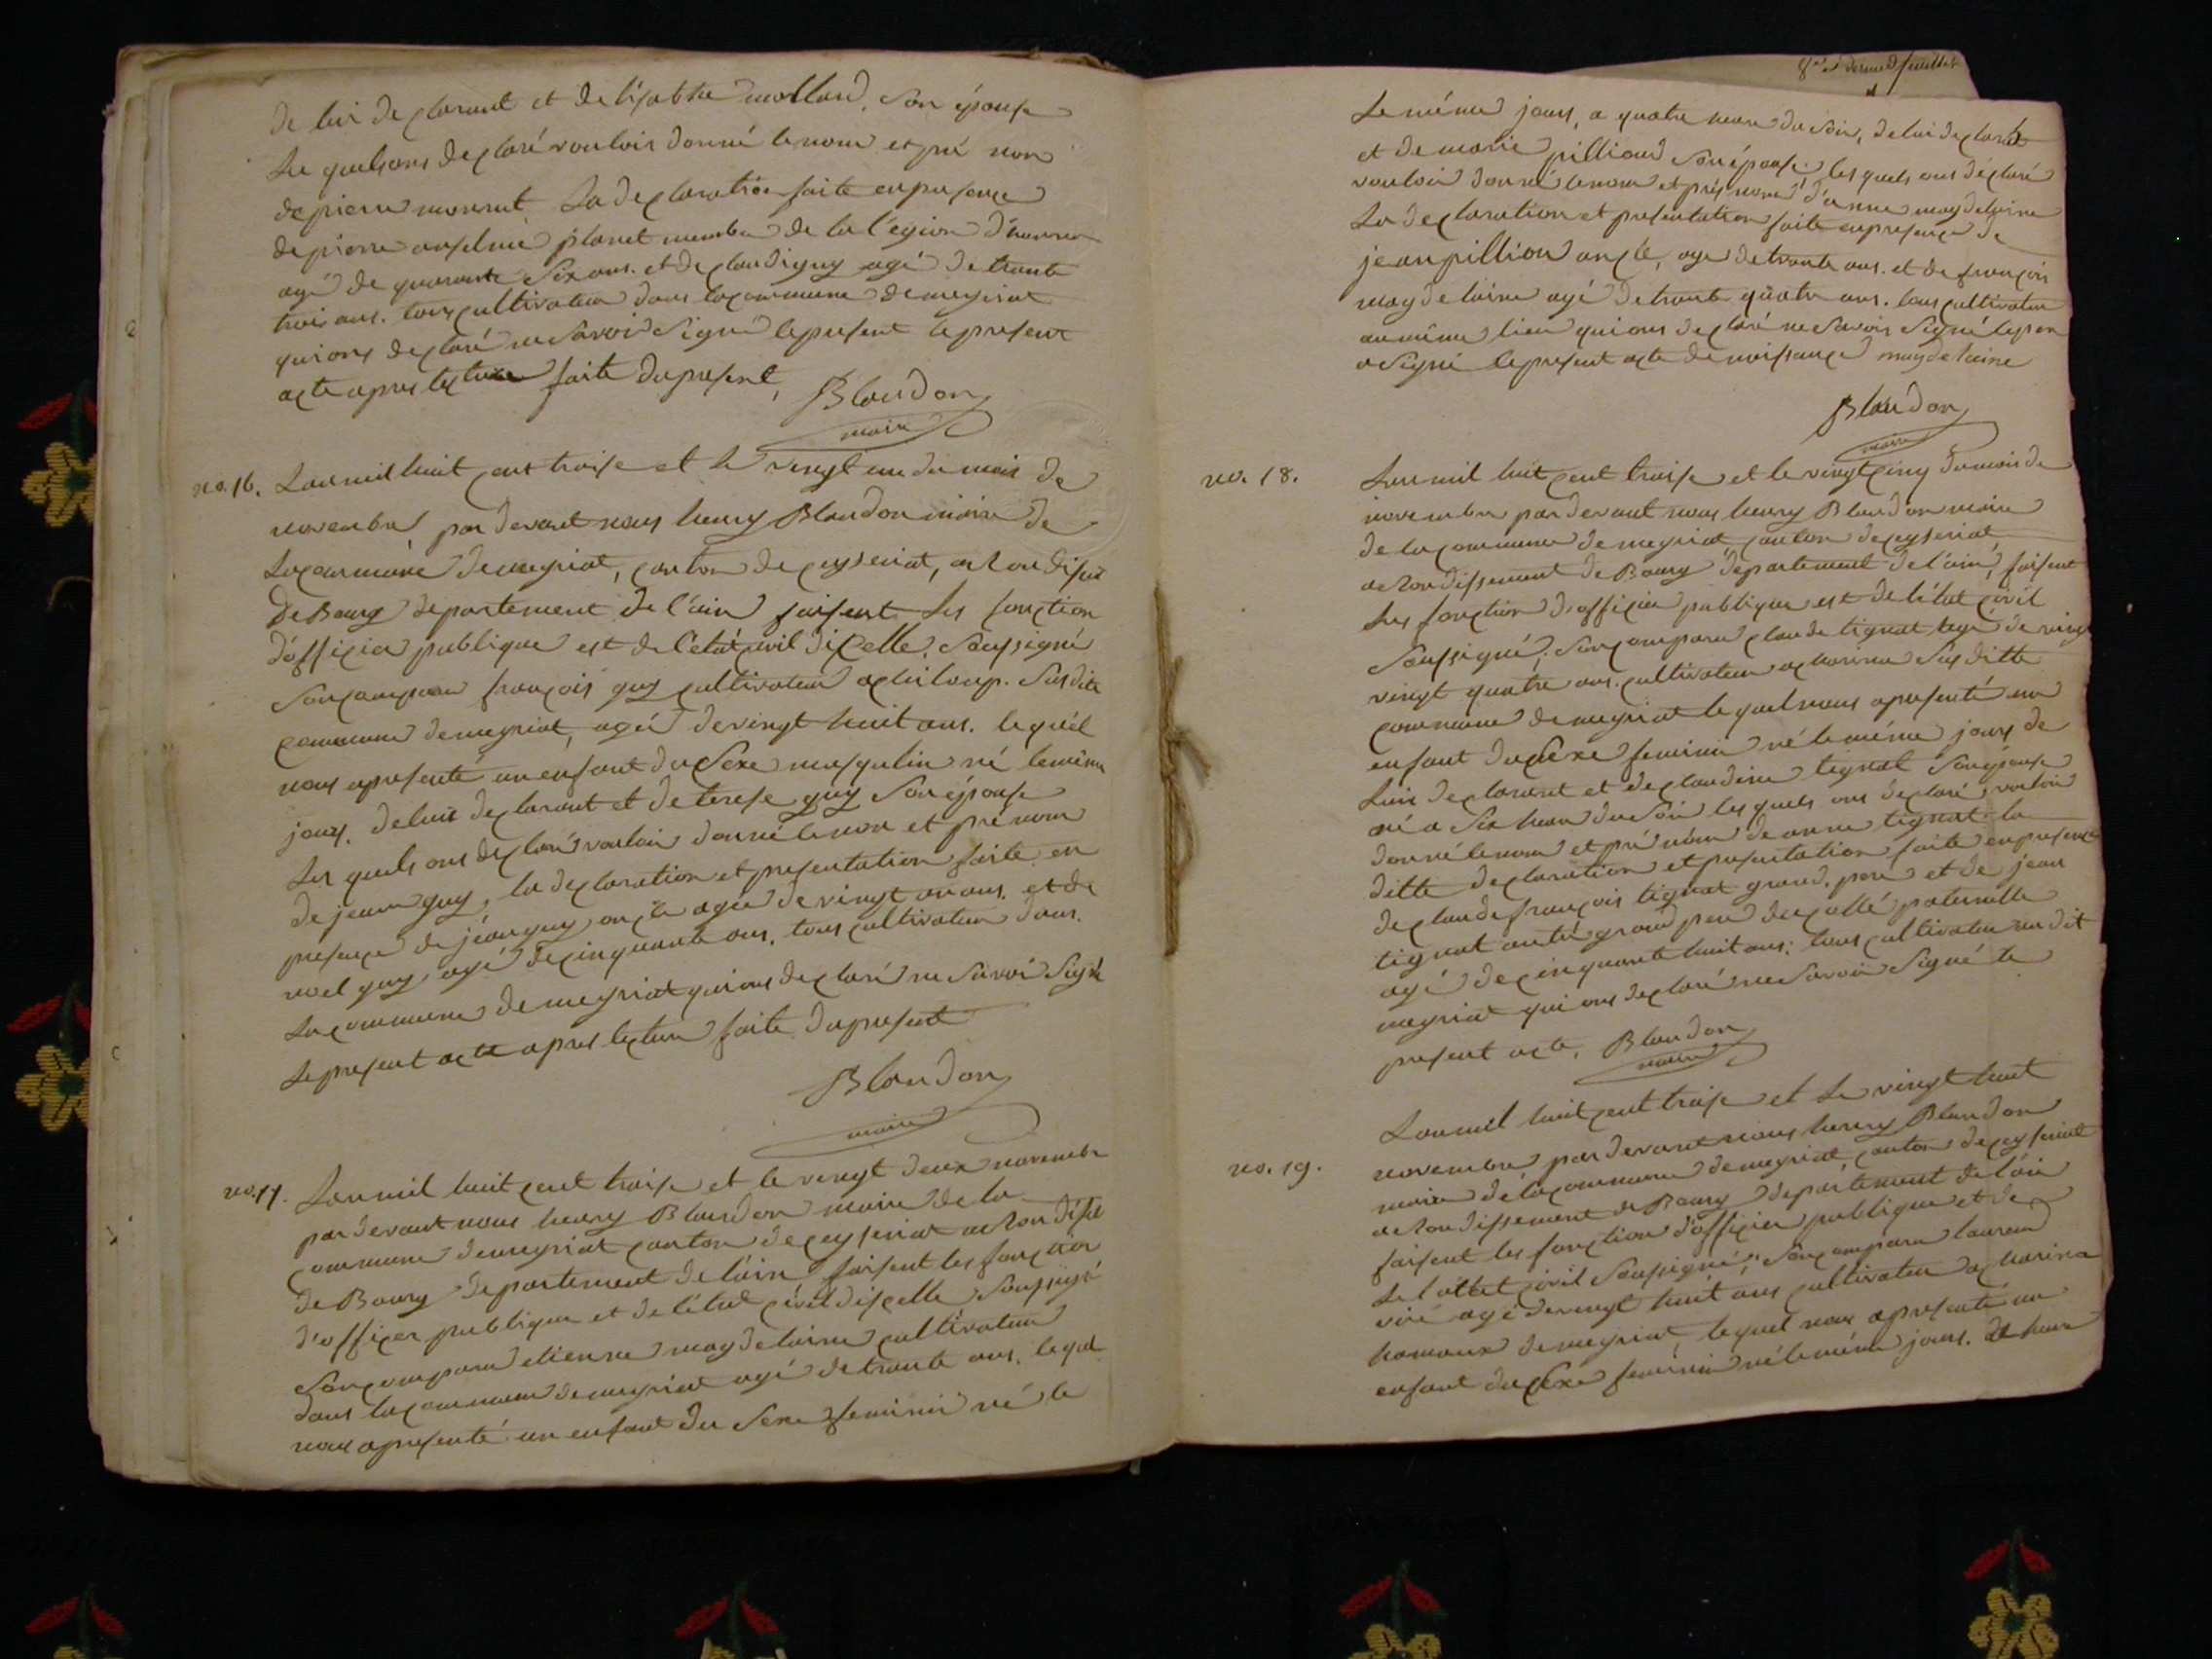 de lui declarant et de lisabhe mollard, son épouse
Les quels ons declaré vouloir donné le nom et pré nom
de pierre morrut La declaration faite en presence
de pierre anselme planet membre de la légion d'honneur
agé de quarante six ans. et de claudi guy agé de trante
trois ans. tous cultivateur dans la commune de meyriat
qui ons declaré ne savoir signé le present le present
acte apres lecture faite du present, Blondon
maire
no. 16. L'an mil huit cent traise et le vingt un du mois de
novembre, par devant nous henry Blondon maire de
La commune de meyriat, canton de ceyseriat, arrondiset
de Bourg departement de l'ain faisent Les fonction
d'officier publique est de l'état civil dicelle. soussigné
son comparu françois guy cultivateur a chiloup. susdite
commune de meyriat, agé de vingt huit ans. le quel
nous a presenté un enfant du sexe masqulin né le même
jours. de lui declarant et de terese guy son épouse
Les quels ons declaré vouloir donné le nom et pré nom
de jean guy, la declaration et presentation faite en
presence de jean guy oncle agé de vingt un ans. et de
noel guy agé de cinquante ans, tous cultivateur dans.
La commune de meyriat qui ons declaré ne savoir signé
Le present acte apres lecture faite du present
Blondon
maire
no. 17. L'an mil huit cent traise et le vingt deux novembre
par devant nous henry Blondon maire de la
commune de meyriat canton de ceyseriat arrondiset
de Bourg departement de l'ain faisent les fonction
d'officier publique et de l'état civil dicelle soussigné
son comparu etienne maydelaine cultivateur
dans la commune de meyriat agé de trante ans. le quel
nous a presenté un enfant du sexe feminin né le
8me et dernier feuillet
Le même jours, a quatre heure du soir, de lui declarant
et de marie pilliond son épouse les quels ons déclaré
vouloir donné le nom et prés nom d'anne maydelaine
La declaration et presentation faite en presence de
jean pilliod oncle, agé de trante ans. et de françois
maydelaine agé de trante quatre ans. tous cultivateur
au même lieu qui ons declaré ne savoir signé le pere
a signé le present acte de naissance maydelaine
Blondon
maire
no. 18. L'an mil huit cent traise et le vingt cinq du mois de
novembre par devant nous henry Blondon maire
de la commune de meyriat canton de ceyseriat
arrondissement de Bourg département de l'ain, faisent
Les fonction d'officier publique est de l'état civil
soussigné, son comparu claude tignat agé de vingt
vingt quatre ans. cultivateur a charinas sus ditte
commune de meyriat le quel nous a presenté un
enfant du sexe feminin né le même jours de
Lui declarant et de claudine tignat son épouse
né a six heur du soir les quels ons declaré, vouloir
donné le nom et pré nom de anne tignat la
ditte declaration et presentation faite en presence
de claude françois tignat grand, pere et de jean
tignat autre grand pere du collé paternelle
agé de cinquante huit ans: tous cultivateur au dit
meyriat qui ons declaré ne savoir signé le
present acte, Blondon
maire
L'an mil huit cent traise et le vingt huit
no. 19. novembre par devant nous henry Blondon
maire de la commune de meyriat canton de ceyseriat
arrondissement de Bourg departement de l'ain
faisent les fonction d'officier publique et de
Le l'ettet civil soussigné, son comparu laurend
viré agé de vingt huit ans cultivateur a charinas
hamaux de meyriat lequel nous a presenté un
enfant du sexe feminin né le même jours. heure